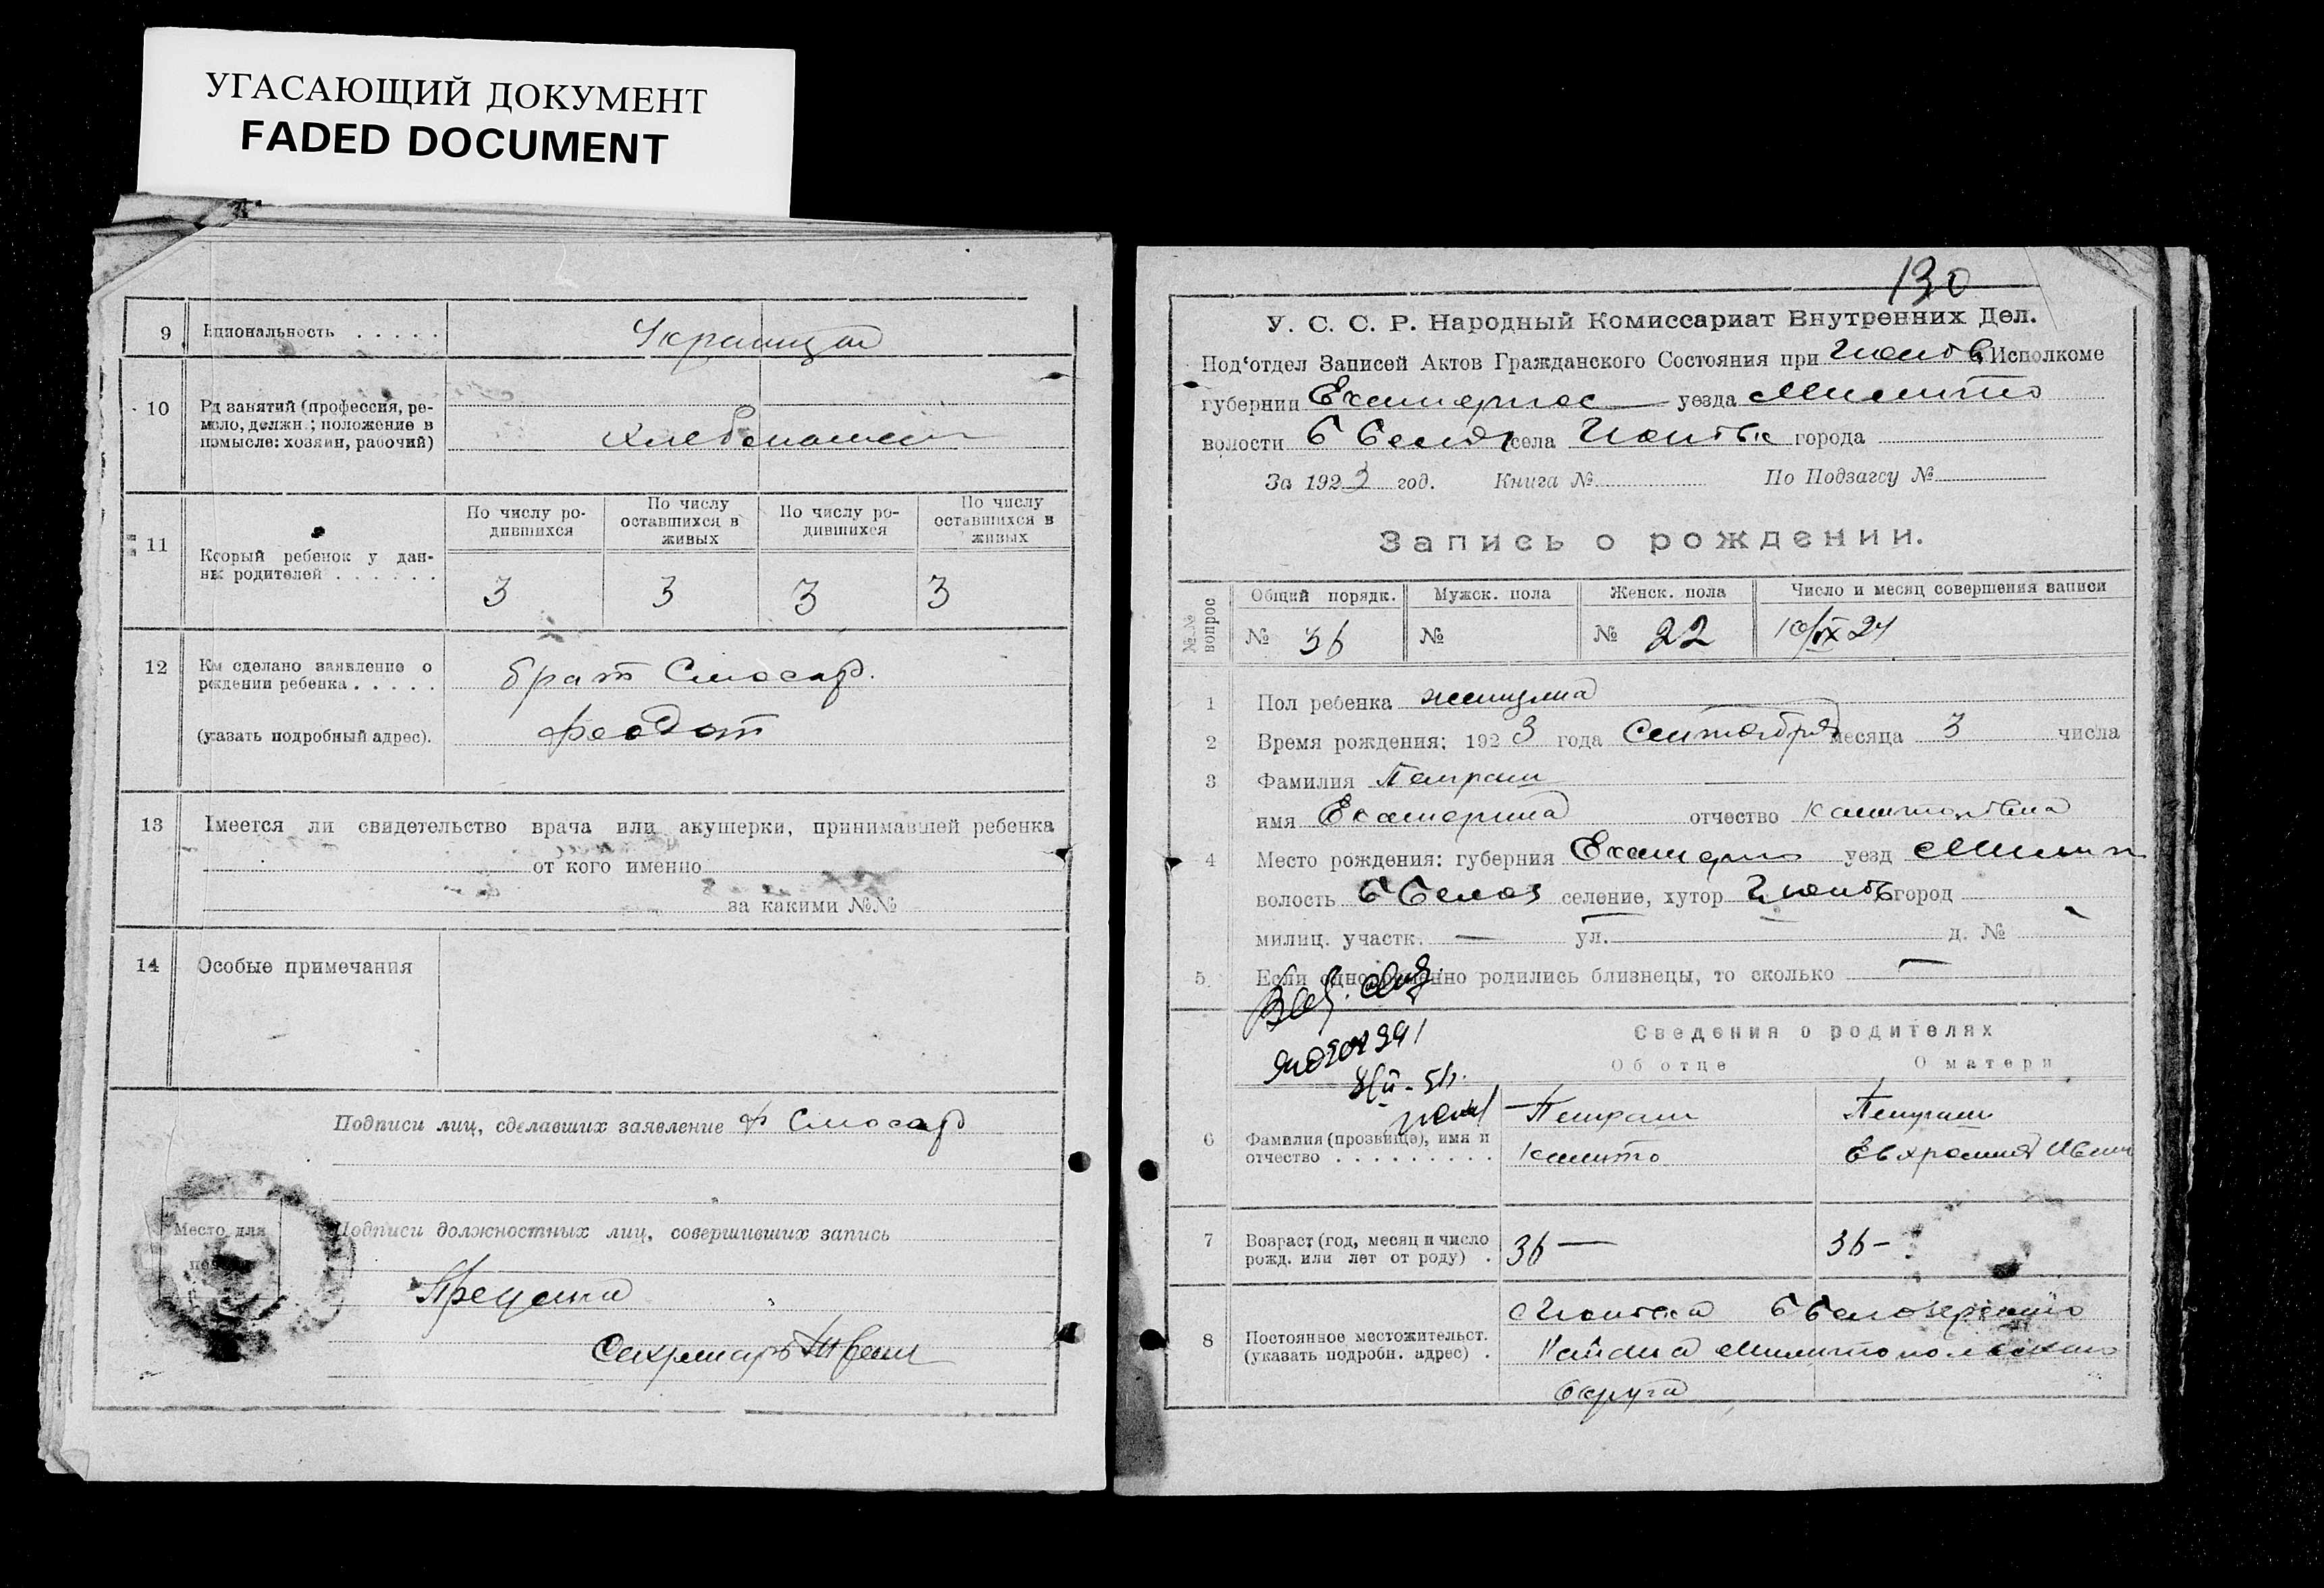 УГАСАЮЩИЙ ДОКУМЕНТ
FADED DOCUMENT
9 циональность . . . . .
10 Рд занятий (профессия, ре-
мсло, должн.; положение в
помысле: хозяин, рабочий)
11 Ксорый ребенок у дан-
нх родителей . . . . . .
По числу ро-
дившихся
По числу
оставшихся в
живых
По числу ро-
дившихся
По числу
оставшихся в
живых
3 3 3 3
12 Км сделано заявление о
рждении ребенка . . . . .
брат Слюсар.
(указать подробный адрес).
Феодот
13 Імеется ли свидетельство врача или акушерки, принимавшей ребенка
от кого именно
за какими №№
14 Особые примечания
Подписи лиц, сделавших заявление Ф Слюсар
Место для
Подписи должностных лиц, совершивших запись
Секретарь
130
У. С. С. Р. Народный Комиссариат Внутренних Дел.
Под‘отдел Записей Актов Гражданского Состояния при Исполкоме
губернии Екатеринос уезда Мелито
волости Б Белоз села города
За 1923 год. Книга № По Подзагсу №
Запись о рождении.
№№ вопрос
Общий порядк. Мужск. пола Женск. пола Число и месяц совершения записи
№ 36 № № 22 10/IX 24
1 Пол ребенка женщина
2 Время рождения: 1923 года Сентября месяца 3 числа
3 Фамилия Петраш
имя Екатерина отчество
4 Место рождения: губерния Екатерин уезд Мелит
волость Б Белоз селение, хутор город
милиц. участк. — ул. д. №
5 Если одновременно родились близнецы, то сколько —
Сведения о родителях
Об отце О матери
6 Фамилия (прозвище), имя и
отчество . . . . . . . . .
Петраш
Петраш
7 Возраст (год, месяц и число
рожд. или лет от роду) .
36 — 36 -
8 Постоянное местожительст.
(указать подробн. адрес) .
Б Белозерского
Района Мелитопольского
Округа